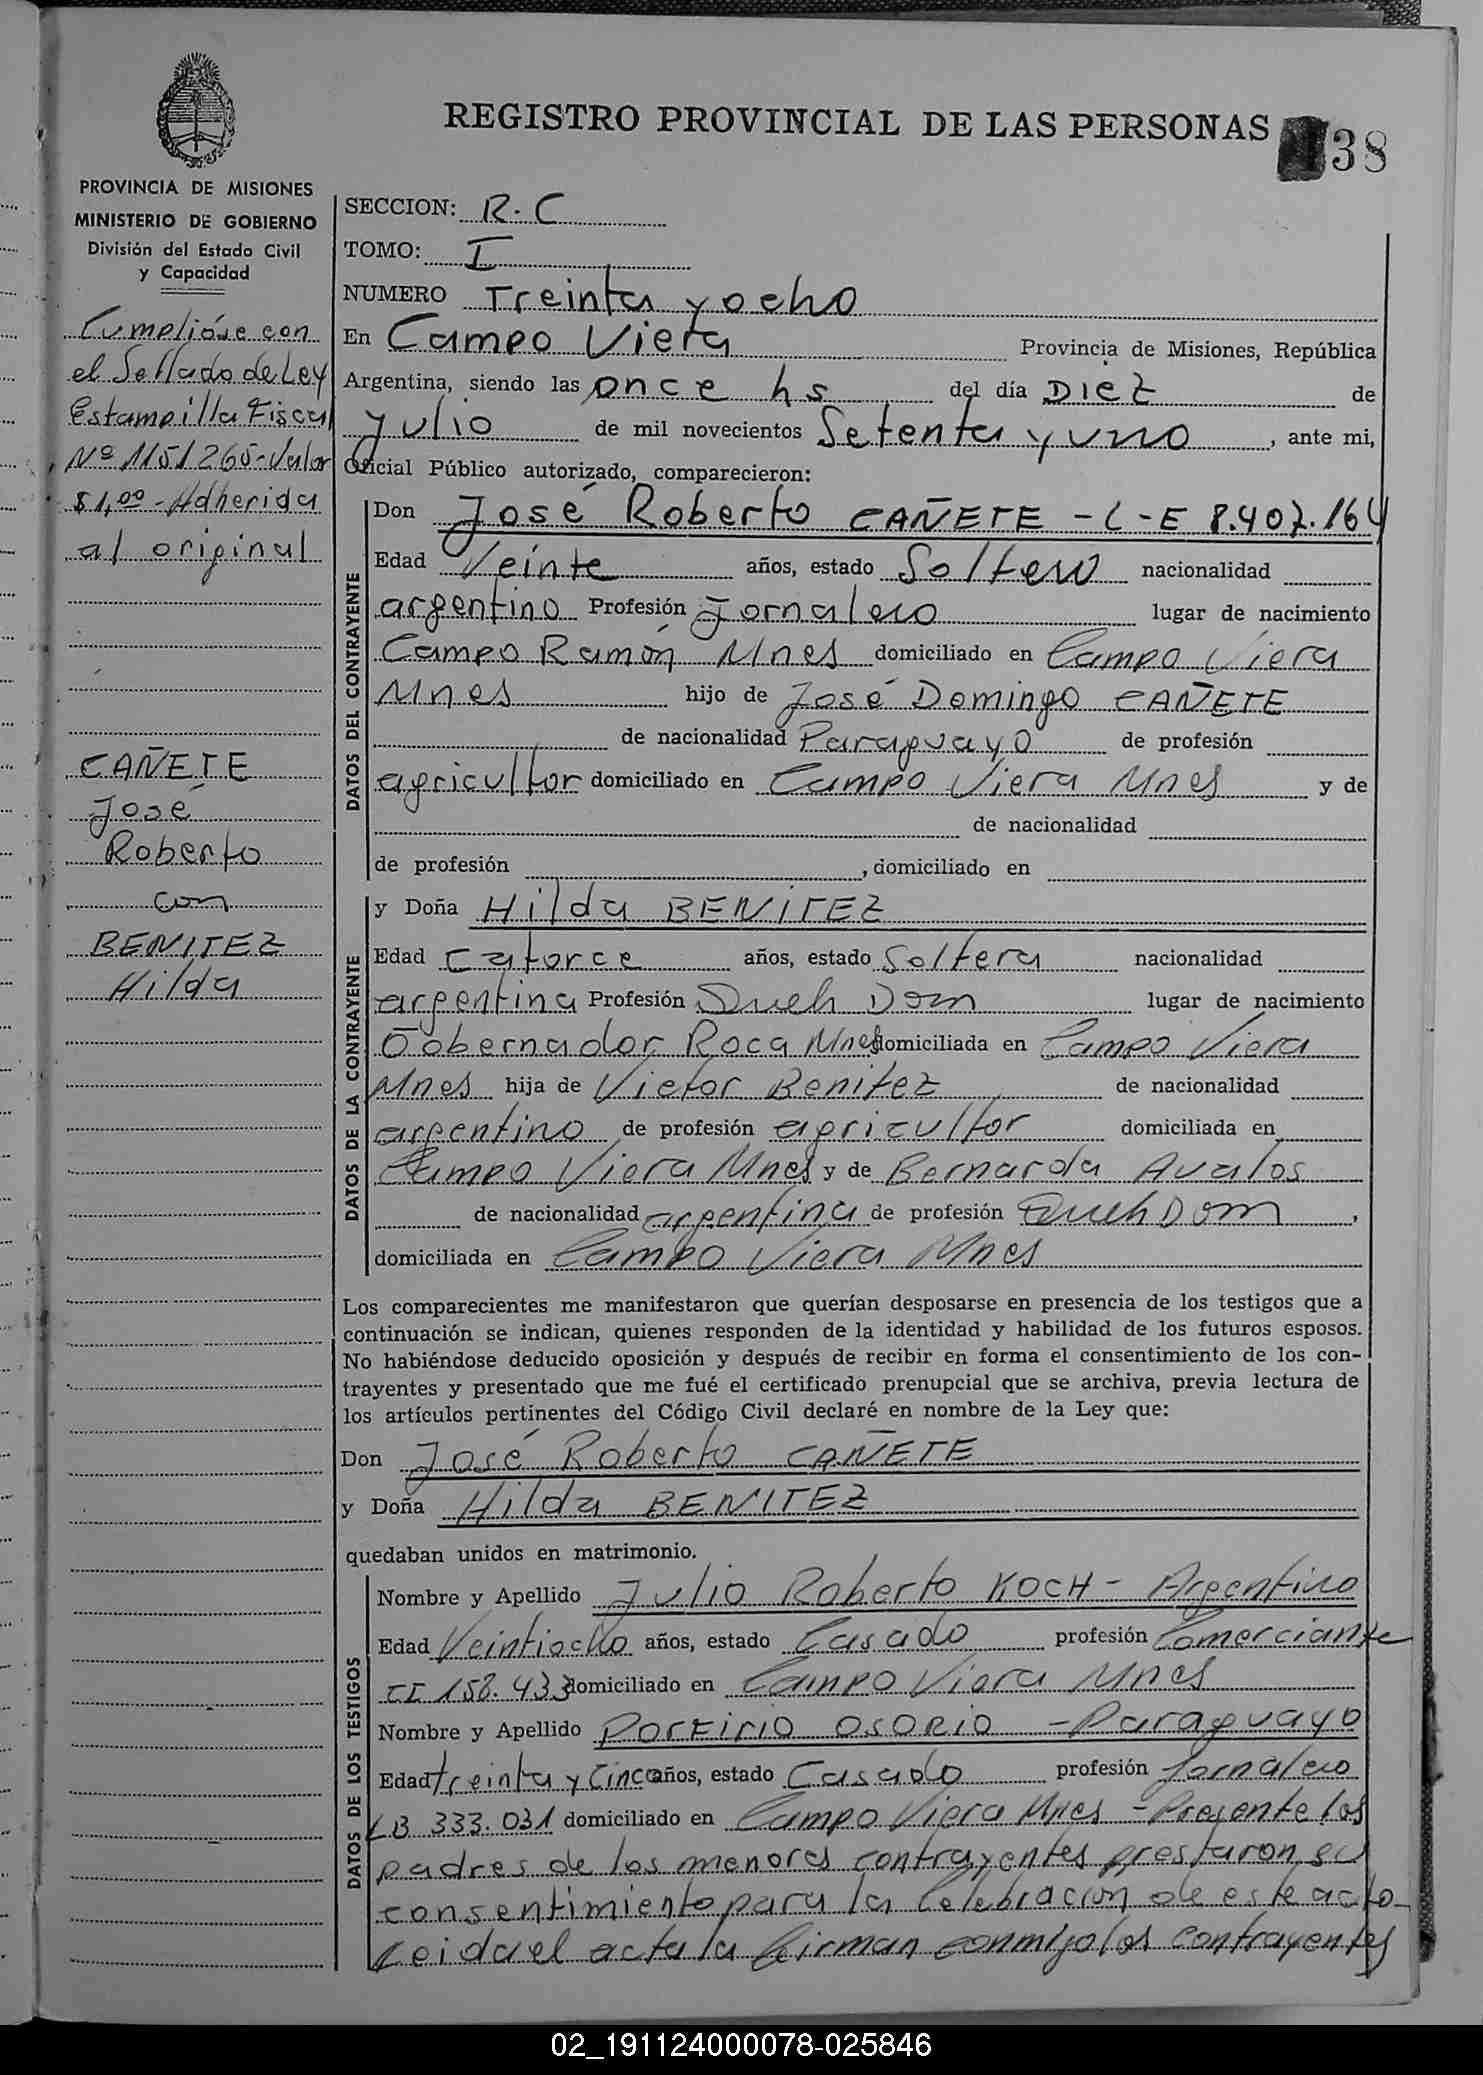 REGISTRO PROVINCIAL DE LAS PERSONAS
38
PROVINCIA DE MISIONES
MINISTERIO DE GOBIERNO
División del Estado Civil
y Capacidad
Cumplióse con
el Sellado de Ley
Estampilla Fiscal
Nº 1151265-Valor
$1,00-Adherida
al original
CAÑETE
José
Roberto
con
BENITEZ
Hilda
SECCION: R.C
TOMO: I
NUMERO Treinta y ocho
En Campo Viera Provincia de Misiones, República
Argentina, siendo las once hs del día Diez de
Julio de mil novecientos Setenta y uno, ante mi,
Oficial Público autorizado, comparecieron:
DATOS DEL CONTRAYENTE
Don José Roberto CAÑETE - L-E 8.407.164
Edad Veinte años, estado Soltero nacionalidad
argentino Profesión Jornalero lugar de nacimiento
Campo Ramón Mnes domiciliado en Campo Viera
Mnes hijo de José Domingo CAÑETE
de nacionalidad Paraguayo de profesión
agricultor domiciliado en Campo Viera Mnes y de
de nacionalidad
de profesión , domiciliado en
DATOS DE LA CONTRAYENTE
y Doña Hilda BENITEZ
Edad Catorce años, estado Soltera nacionalidad
argentina Profesión Queh Dom lugar de nacimiento
Gobernador Roca Mnes domiciliada en Campo Viera
Mnes hija de Victor Benitez de nacionalidad
argentino de profesión agricultor domiciliada en
Campo Viera Mnes y de Bernarda Avalos
de nacionalidad argentina de profesión Queh Dom,
domiciliada en Campo Viera Mnes
Los comparecientes me manifestaron que querían desposarse en presencia de los testigos que a
continuación se indican, quienes responden de la identidad y habilidad de los futuros esposos.
No habiéndose deducido oposición y después de recibir en forma el consentimiento de los con-
trayentes y presentado que me fué el certificado prenupcial que se archiva, previa lectura de
los artículos pertinentes del Código Civil declaré en nombre de la Ley que:
Don José Roberto CAÑETE
y Doña Hilda BENITEZ
quedaban unidos en matrimonio.
DATOS DE LOS TESTIGOS
Nombre y Apellido Julio Roberto KOCH - Argentino
Edad Veintiocho años, estado Casado profesión Comerciante
CI 158.433 domiciliado en Campo Viera Mnes
Nombre y Apellido PORFIRIO OSORIO - Paraguayo
Edad treinta y Cinco años, estado Casado profesión Jornalero
LB 333.031 domiciliado en Campo Viera Mnes - Presente los
padres de los menores contrayentes prestaron su
consentimiento para la Celebración de este acto
Leida el acta la firman conmigo los contrayentes
02_191124000078-025846